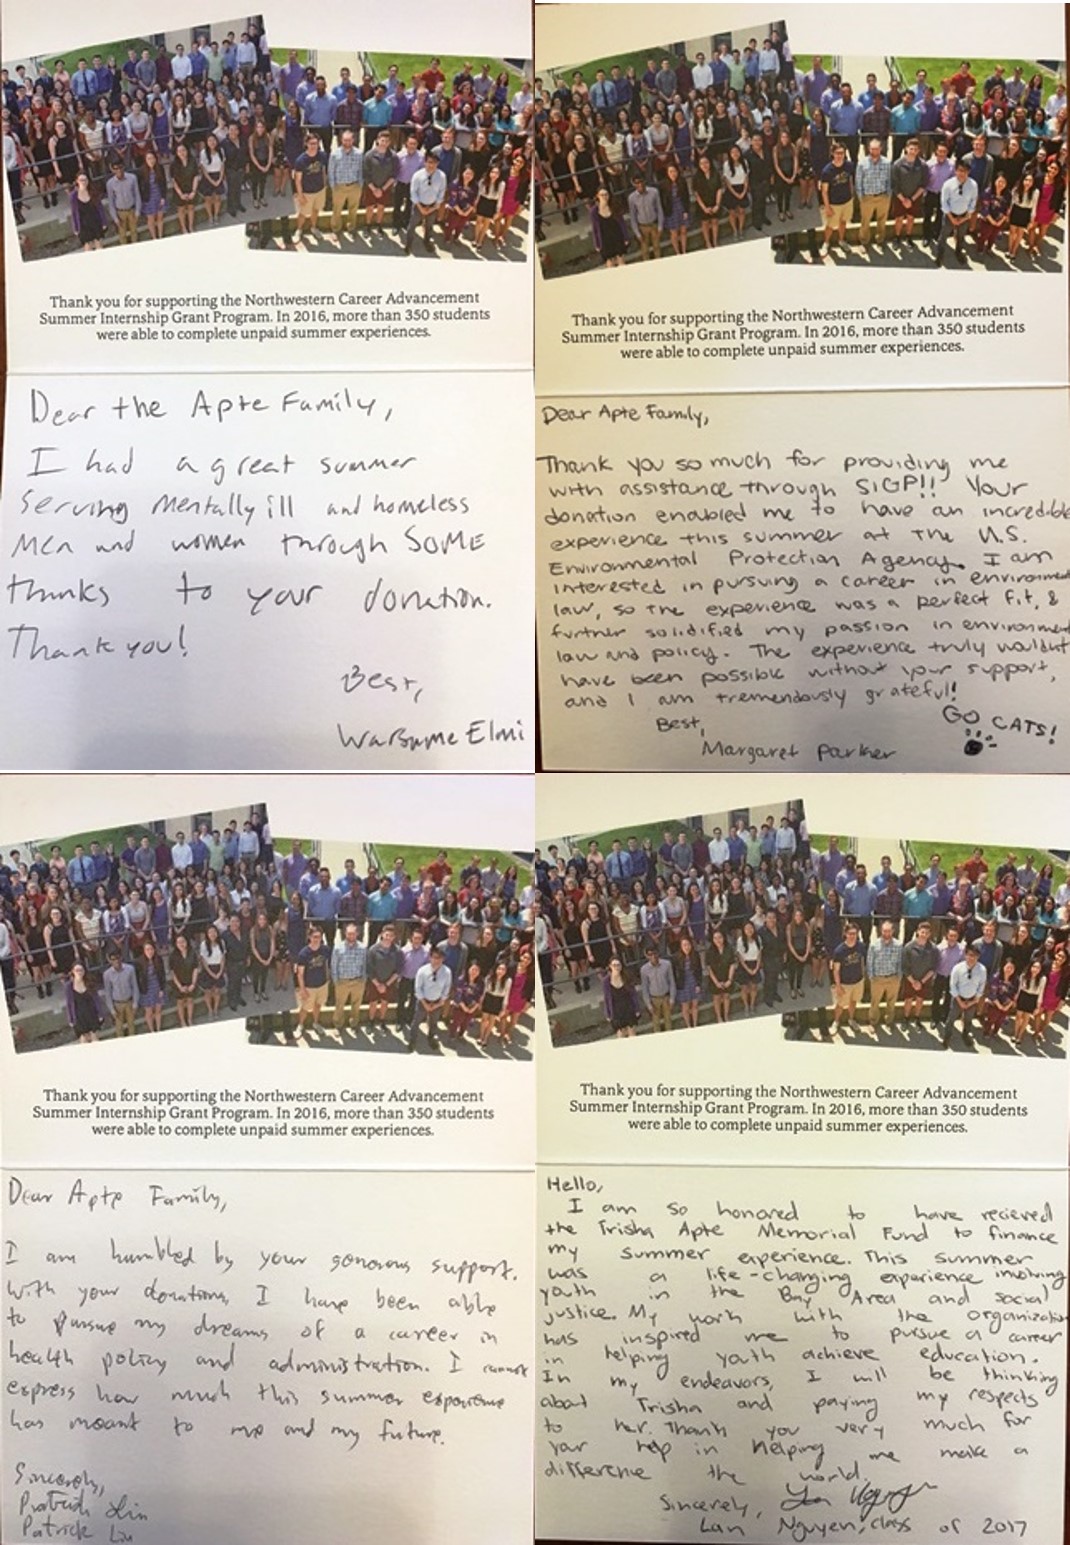 Thank you for supporting the Northwestern Career Advancement
Summer Internship Grant Program. In 2016, more than 350 students
were able to complete unpaid summer experiences.
Dear the Apte Family,
I had a great summer
serving mentally ill and homeless
men and women through SOME
thanks to your donation.
Thank you!
Best,
Warsame Elmi
Thank you for supporting the Northwestern Career Advancement
Summer Internship Grant Program. In 2016, more than 350 students
were able to complete unpaid summer experiences.
Dear Apte Family,
Thank you so much for providing me
with assistance through SIGP!! Your
donation enabled me to have an incredible
experience this summer at the U.S.
Environmental Protection Agency. I am
interested in pursuing a career in environment
law, so the experience was a perfect fit, &
further solidified my passion in environment
law and policy. The experience truly wouldn't
have been possible without your support,
and I am tremendously grateful!
GO CATS!
Best,
Margaret Parker
Thank you for supporting the Northwestern Career Advancement
Summer Internship Grant Program. In 2016, more than 350 students
were able to complete unpaid summer experiences.
Dear Apte Family,
I am humbled by your gonorous support.
With your donations, I have been able
to pursue my dreams of a career in
health policy and administration. I cannot
express how much this summer experience
has meant to me and my future.
Sincerely,
Patrick Lin
Patrick Lin
Thank you for supporting the Northwestern Career Advancement
Summer Internship Grant Program. In 2016, more than 350 students
were able to complete unpaid summer experiences.
Hello,
I am so honored to have recieved
the Trisha Apte Memorial Fund to finance
my summer experience. This summer
was a life-changing experience involving
youth in the Bay Area and social
justice. My work with the organization
has inspired me to pursue a career
in helping youth achieve education.
In my endeavors, I will be thinking
about Trisha and paying my respects
to her. Thank you very much for
your help in helping me make a
difference the world.
Sincerely,
Lan Nguyen, class of 2017